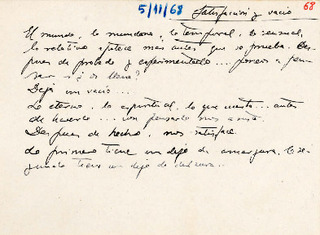 5/11/68 Satisfacción y vacío 68
El mundo, lo mundano, lo temporal, lo sensual,
lo relativo apetece más antes que se prueba. Des-
pués de probado y experimentado... 
Dejó un vacío...
Lo eterno, lo espiritual, lo que cuesta... antes
de hacerlo... con pensarlo nos
Después de hecho, nos satisface.
Lo primero tiene un dejo de amargura, lo se-
gundo tiene un dejo de dulzura.